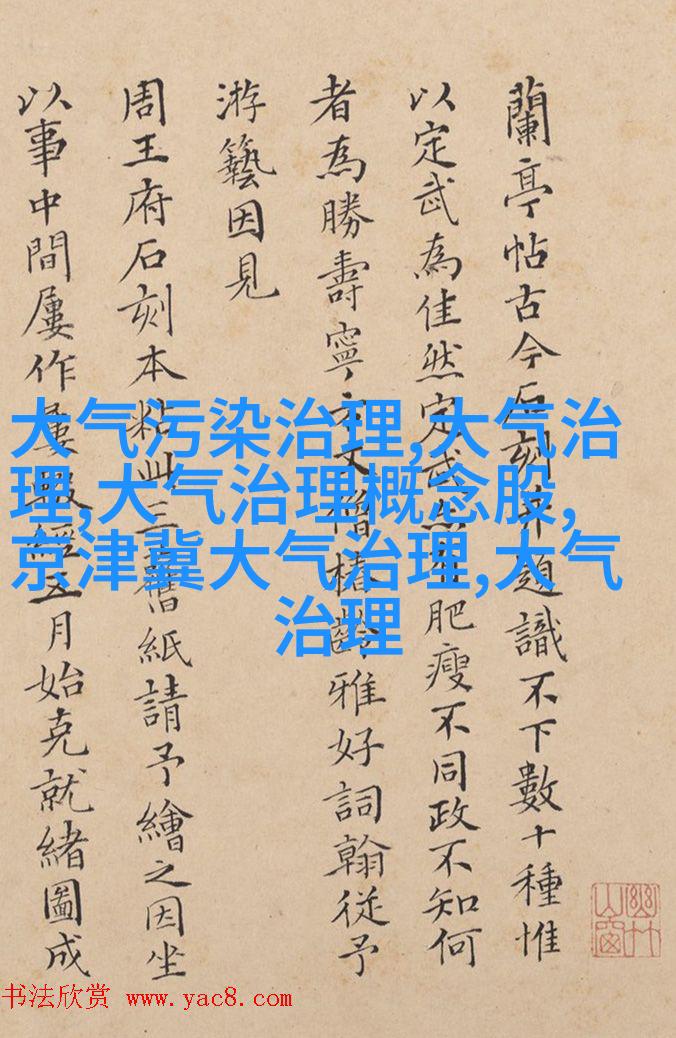 蘭亭帖古今石刻并題識不下數十種惟
以定武為佳然定武肥瘦不同政不知何
者為勝壽寧僧椿齡雅好詞翰從予
游藝因見
周王府石刻本粘此三舊紙請予繪之因坐
以事中間屢作屢輟經五月始克就緒圖成
大气污染治理,大气治
理,大气治理概念股,
京津冀大气治理,大气
治理
幽竹山窗
书法欣赏 www.yac8.com